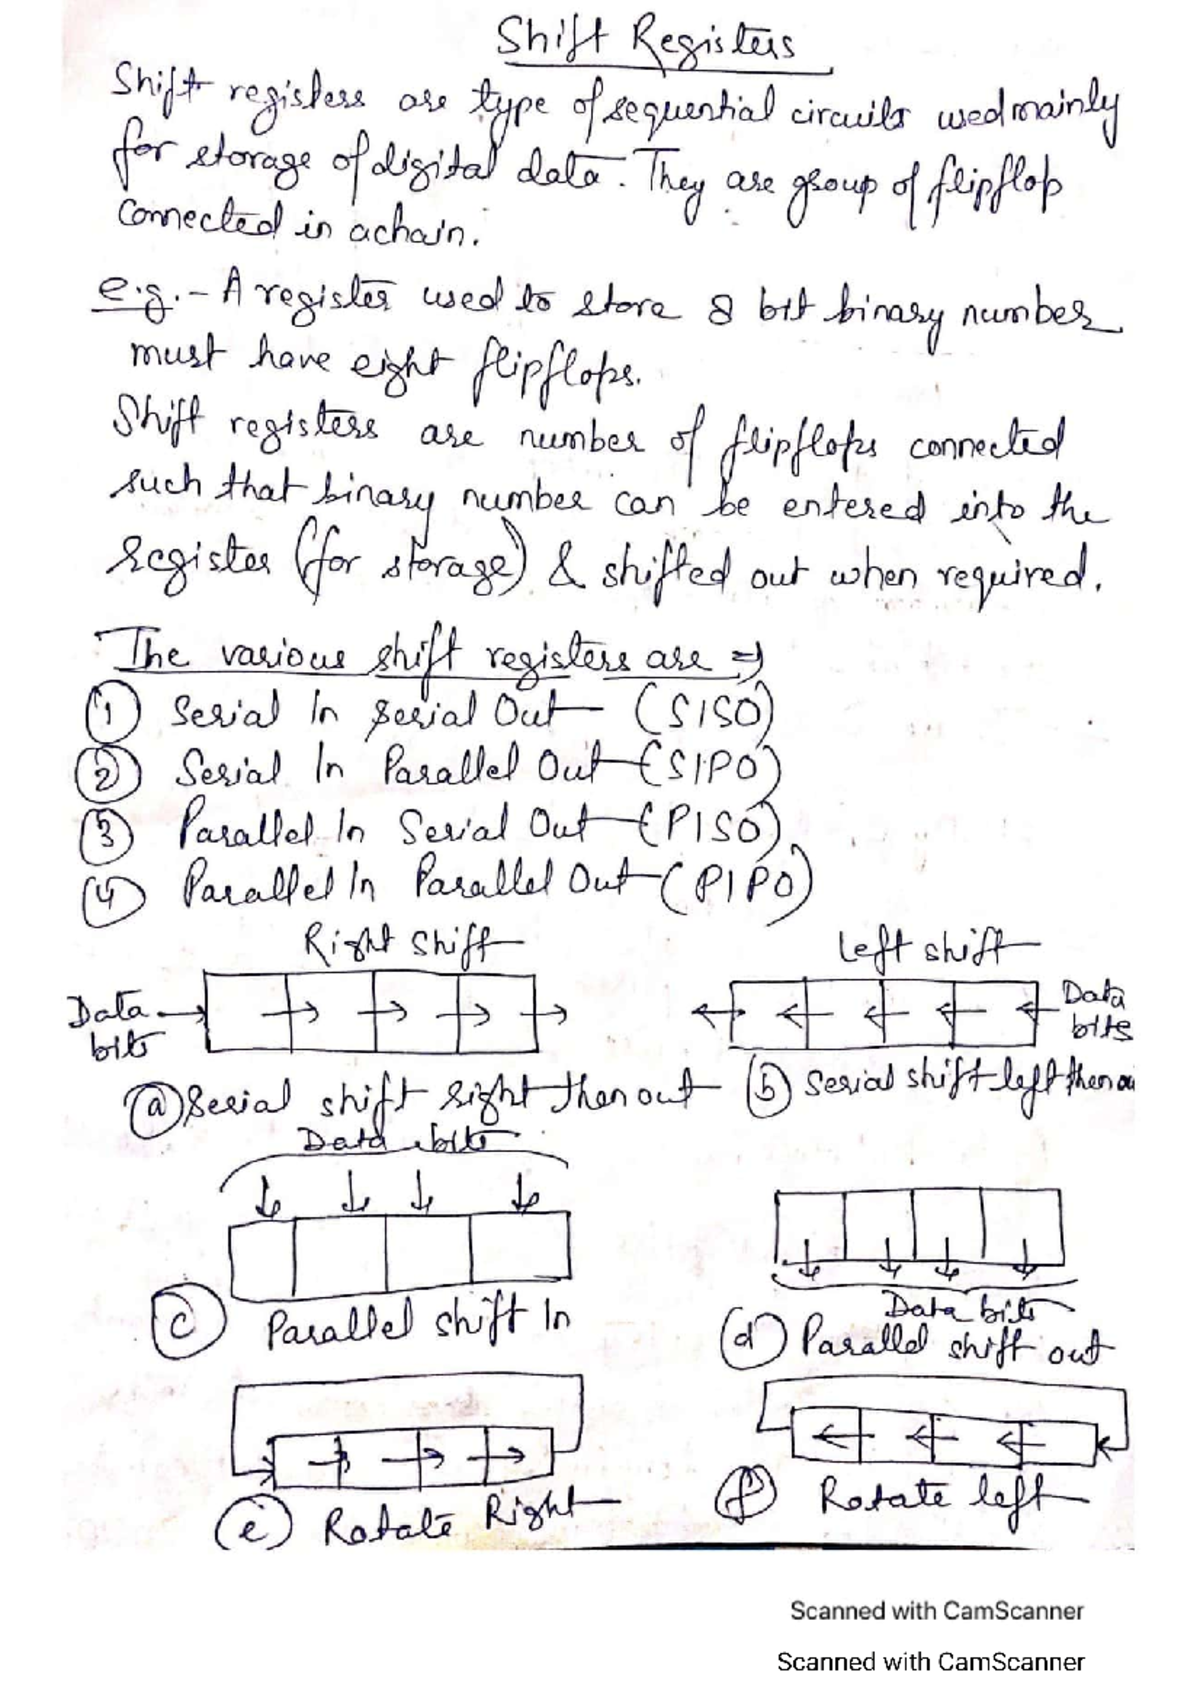 Shift Registers
Shift registers are type of sequential circuits used mainly
for storage of digital data. They are group of flipflop
connected in a chain.
e.g. - A register used to store 8 bit binary number
must have eight flipflops.
Shift registers are number of flipflops connected
such that binary number can be entered into the
register (for storage) & shifted out when required.
The various shift registers are ⇒
① Serial In Serial Out - (SISO)
② Serial In Parallel Out - (SIPO)
③ Parallel In Serial Out - (PISO)
④ Parallel In Parallel Out - (PIPO)
Right shift
Left shift
Data
bits
Data
bits
ⓐ Serial shift right then out
ⓑ Serial shift left then ou
Data bits
ⓒ Parallel shift In
Data bits
ⓓ Parallel shift out
ⓔ Rotate Right
ⓕ Rotate left
Scanned with CamScanner
Scanned with CamScanner